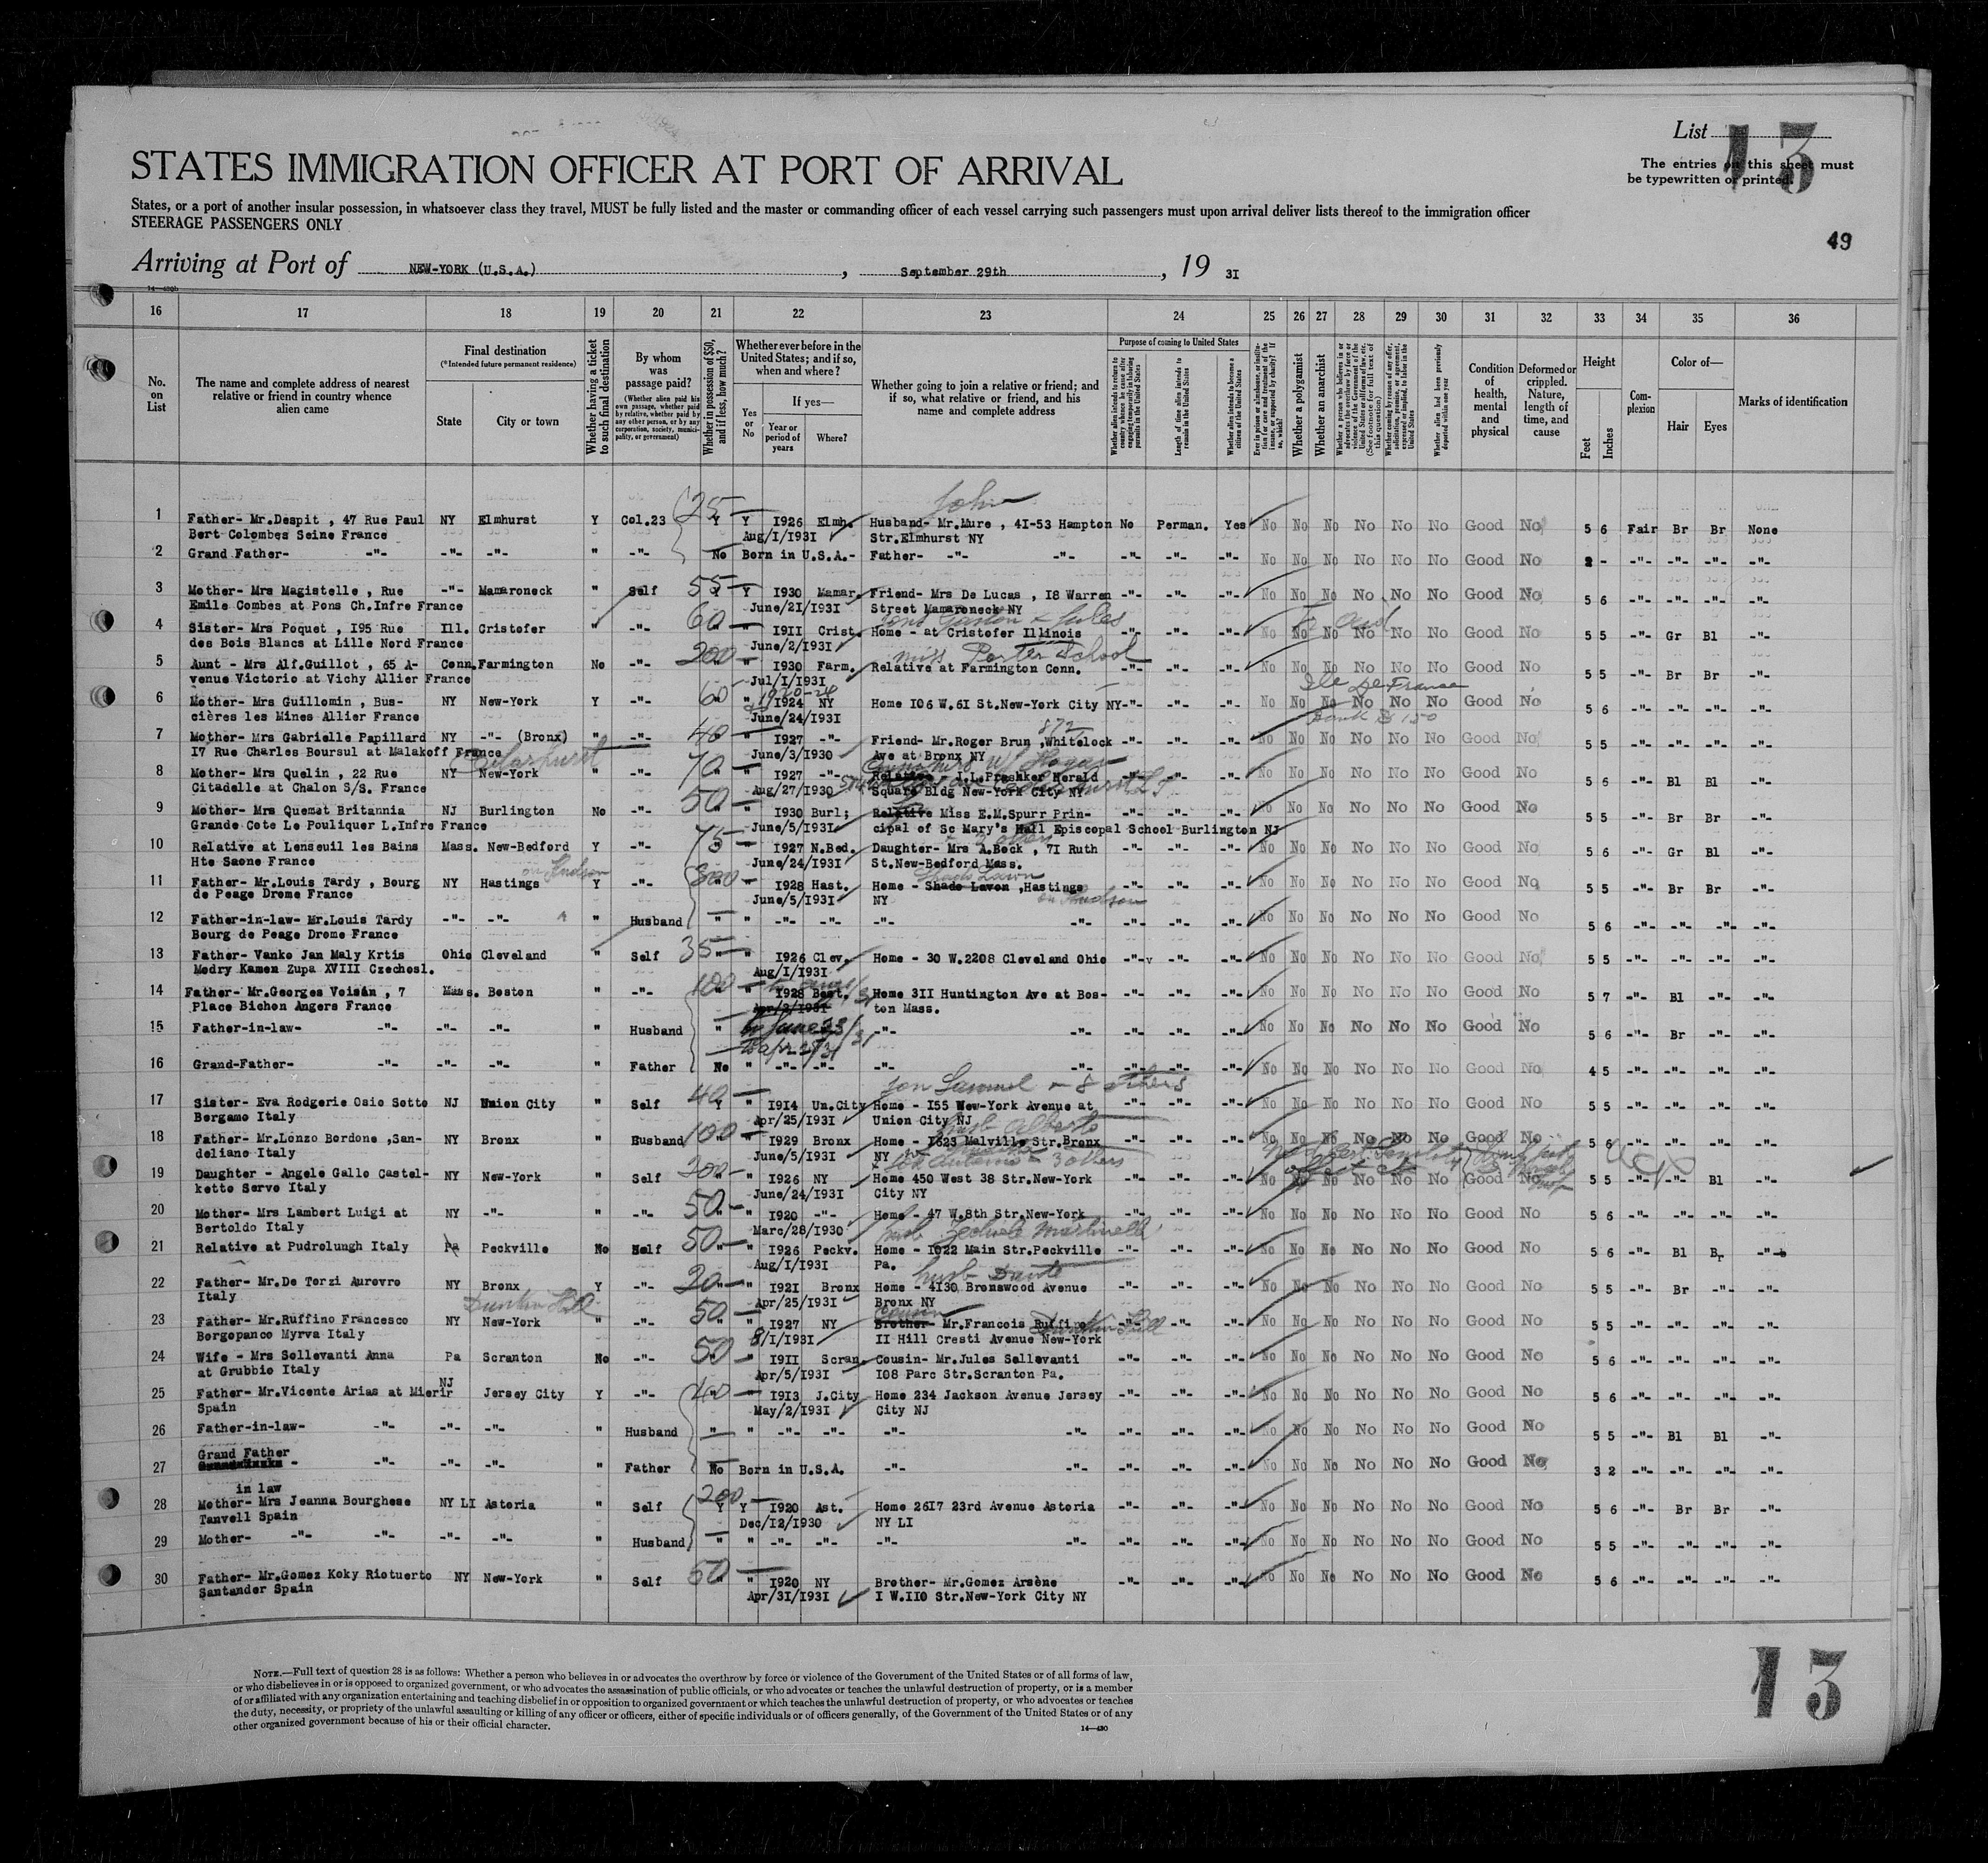 List 13
The entries on this sheet must
be typewritten or printed.
STATES IMMIGRATION OFFICER AT PORT OF ARRIVAL
States, or a port of another insular possession, in whatsoever class they travel, MUST be fully listed and the master or commanding officer of each vessel carrying such passengers must upon arrival deliver lists thereof to the immigration officer
STEERAGE PASSENGERS ONLY
49
Arriving at Port of NEW-YORK (U.S.A.), September 29th, 19 3I
16 17 18 19 20 21 22 23 24 25 26 27 28 29 30 31 32 33 34 35 36
No. on List
The name and complete address of nearest relative or friend in country whence alien came
Final destination
(*Intended future permanent residence)
State
City or town
Whether having a ticket to such final destination
By whom was passage paid?
(Whether alien paid his own passage, whether paid by relative, whether paid by any other person, or by any corporation, society, municipality, or government)
Whether in possession of $50, and if less, how much?
Whether ever before in the United States; and if so, when and where?
Yes or No
If yes—
Year or period of years
Where?
Whether going to join a relative or friend; and if so, what relative or friend, and his name and complete address
Purpose of coming to United States
Length of time alien intends to remain in the United States
Whether alien intends to become a citizen of the United States
Whether a polygamist
Whether an anarchist
Condition of health, mental and physical
Deformed or crippled. Nature, length of time, and cause
Height
Feet
Inches
Complexion
Color of—
Hair
Eyes
Marks of identification
1 Father- Mr.Despit , 47 Rue Paul NY Elmhurst Y Col.23 25 Y Y I926 Elmh. Husband- Mr.Mure , 4I-53 Hampton No Perman. Yes No No No No No No Good No 5 6 Fair Br Br None
Bert Colombes Seine France Aug/I/I93I Str.Elmhurst NY
2 Grand Father- -"- -"- -"- " -"- No Born in U.S.A.- Father- -"- -"- -"- -"- -"- No No No No No No Good No 2 - -"- -"- -"- -"-
3 Mother- Mrs Magistelle , Rue -"- Mamaroneck " Self 55 Y Y I930 Mamar. Friend- Mrs De Lucas , I8 Warren -"- -"- -"- No No No No No No Good No 5 6 -"- -"- -"- -"-
Emile Combes at Pons Ch.Infre France June/2I/I93I Street Mamaroneck NY
4 Sister- Mrs Poquet , I95 Rue Ill. Cristofer " -"- 60 " " I9II Crist. Home - at Cristofer Illinois -"- -"- -"- No No No No No No Good No 5 5 -"- Gr Bl -"-
des Bois Blancs at Lille Nord France June/2/I93I
Miss Porter School
5 Aunt - Mrs Alf.Guillot , 65 A- Conn. Farmington No -"- 200 " " I930 Farm. Relative at Farmington Conn. -"- -"- -"- No No No No No No Good No 5 5 -"- Br Br -"-
venue Victoric at Vichy Allier France Jul/I/I93I
Ile De France
6 Mother- Mrs Guillomin , Bus- NY New-York Y -"- 60 " " I924 NY Home I06 W.6I St.New-York City NY -"- -"- -"- No No No No No No Good No 5 6 -"- -"- -"- -"-
cières les Mines Allier France June/24/I93I
872
7 Mother- Mrs Gabrielle Papillard NY -"- (Bronx) " -"- 40 " " I927 -"- Friend- Mr.Roger Brun ,Whitelock -"- -"- -"- No No No No No No Good No 5 5 -"- -"- -"- -"-
I7 Rue Charles Boursul at Malakoff France June/3/I930 Ave at Bronx NY
8 Mother- Mrs Quelin , 22 Rue NY New-York " -"- 70 " " I927 -"- Relative - J.L.Prashker Herald -"- -"- -"- No No No No No No Good No 5 6 -"- Bl Bl -"-
Citadelle at Chalon S/S. France Aug/27/I930 Square Bldg New-York City NY
9 Mother- Mrs Quemat Britannia NJ Burlington No -"- 50 I930 Burl; Relative Miss E.M.Spurr Prin- -"- -"- -"- No No No No No No Good No 5 5 -"- Br Br -"-
Grande Cote Le Pouliquer L.Infre France June/5/I93I cipal of Sc Mary's Hall Episcopal School Burlington NJ
10 Relative at Lenseuil les Bains Mass. New-Bedford Y -"- 75 " " I927 N.Bed. Daughter- Mrs A.Beck , 7I Ruth -"- -"- -"- No No No No No No Good No 5 6 -"- Gr Bl -"-
Hte Saone France June/24/I93I St.New-Bedford Mass.
on Hudson Shado Lawn
11 Father- Mr.Louis Tardy , Bourg NY Hastings Y -"- 800 " " I928 Hast. Home - Shade Lavon ,Hastings -"- -"- -"- No No No No No No Good No 5 5 -"- Br Br -"-
de Peage Drome France June/5/I93I NY on Hudson
12 Father-in-law- Mr.Louis Tardy -"- -"- " Husband " " -"- -"- -"- -"- -"- -"- -"- No No No No No No Good No 5 6 -"- -"- -"- -"-
Bourg de Peage Drome France
13 Father- Vanko Jan Maly Krtis Ohio Cleveland " Self 35 " " I926 Clev. Home - 30 W.2208 Cleveland Ohio -"- -"- -"- No No No No No No Good No 5 5 -"- -"- -"- -"-
Modry Kamen Zupa XVIII Czechosl. Aug/I/I93I
14 Father- Mr.Georges Voisin , 7 Mass. Boston " -"- 100 " " I928 Bost. Home 3II Huntington Ave at Bos- -"- -"- -"- No No No No No No Good No 5 7 -"- Bl -"- -"-
Place Bichon Angers France ton Mass.
15 Father-in-law- -"- -"- -"- " Husband " -"- -"- -"- -"- -"- No No No No No No Good No 5 6 -"- Br -"- -"-
16 Grand-Father- -"- -"- -"- " Father No " -"- -"- -"- -"- -"- -"- -"- No No No No No No Good No 4 5 -"- -"- -"- -"-
17 Sister- Eva Rodgerie Osio Sotto NJ Union City " Self 40 Y " I9I4 Un.City Home - I55 New-York Avenue at -"- -"- -"- No No No No No No Good No 5 5 -"- -"- -"- -"-
Bergamo Italy Apr/25/I93I Union City NJ
husb Alberto
18 Father- Mr.Lonzo Berdone ,San- NY Bronx " Husband 100 " " I929 Bronx Home - I823 Malville Str.Bronx -"- -"- -"- No No No No No No Good No 5 6 -"- -"- -"- -"-
deliano Italy June/5/I93I NY
19 Daughter - Angele Gallo Castel- NY New-York " Self 200 " " I926 NY Home 450 West 38 Str.New-York -"- -"- -"- No No No No No No Good No 5 5 -"- -"- Bl -"-
ketto Servo Italy June/24/I93I City NY
20 Mother- Mrs Lambert Luigi at NY -"- " -"- 50 " " I920 -"- Home - 47 W.8th Str.New-York -"- -"- -"- No No No No No No Good No 5 6 -"- -"- -"- -"-
Bertoldo Italy Marc/28/I930
21 Relative at Pudrolungh Italy Pa Peckville No Self 50 " " I926 Peckv. Home - I022 Main Str.Peckville -"- -"- -"- No No No No No No Good No 5 6 -"- Bl Br -"-
Aug/I/I93I Pa.
husb Dante
22 Father- Mr.De Terzi Aurevro NY Bronx Y -"- 20 " " I92I Bronx Home - 4I30 Bronswood Avenue -"- -"- -"- No No No No No No Good No 5 5 -"- Br -"- -"-
Italy Apr/25/I93I Bronx NY
Cousin
23 Father- Mr.Ruffino Francesco NY New-York " -"- 50 " " I927 NY Brother- Mr.Francois Ruffino -"- -"- -"- No No No No No No Good No 5 5 -"- -"- -"- -"-
Borgopanco Myrva Italy 8/I/I93I II Hill Cresti Avenue New-York
24 Wife - Mrs Sellevanti Anna Pa Scranton No -"- 50 " I9II Scran. Cousin- Mr.Jules Sellevanti -"- -"- -"- No No No No No No Good No 5 6 -"- -"- -"- -"-
at Grubbio Italy Apr/5/I93I I08 Parc Str.Scranton Pa.
25 Father- Mr.Vicente Arias at Mierir NJ Jersey City Y -"- 40 " I9I3 J.City Home 234 Jackson Avenue Jersey -"- -"- -"- No No No No No No Good No 5 6 -"- -"- -"- -"-
Spain May/2/I93I City NJ
26 Father-in-law- -"- -"- -"- " Husband " " -"- -"- -"- -"- -"- -"- -"- No No No No No No Good No 5 5 -"- Bl Bl -"-
Grand Father
27 -"- -"- -"- " Father No Born in U.S.A. -"- -"- -"- -"- -"- No No No No No No Good No 3 2 -"- -"- -"- -"-
in law
28 Mother- Mrs Jeanna Bourghese NY LI Astoria " Self 200 Y Y I920 Ast. Home 26I7 23rd Avenue Astoria -"- -"- -"- No No No No No No Good No 5 6 -"- Br Br -"-
Tanvell Spain Dec/I2/I930 NY LI
29 Mother- -"- -"- -"- -"- " Husband " " -"- -"- -"- -"- -"- -"- -"- No No No No No No Good No 5 5 -"- -"- -"- -"-
30 Father- Mr.Gomez Koky Riotuerto NY New-York " Self 50 " " I920 NY Brother- Mr.Gomez Arsène -"- -"- -"- No No No No No No Good No 5 6 -"- -"- -"- -"-
Santander Spain Apr/3I/I93I I W.II0 Str.New-York City NY
NOTE.—Full text of question 28 is as follows: Whether a person who believes in or advocates the overthrow by force or violence of the Government of the United States or of all forms of law,
or who disbelieves in or is opposed to organized government, or who advocates the assassination of public officials, or who advocates or teaches the unlawful destruction of property, or is a member
of or affiliated with any organization entertaining and teaching disbelief in or opposition to organized government or which teaches the unlawful destruction of property, or who advocates or teaches
the duty, necessity, or propriety of the unlawful assaulting or killing of any officer or officers, either of specific individuals or of officers generally, of the Government of the United States or of any
other organized government because of his or their official character.
14—430
13